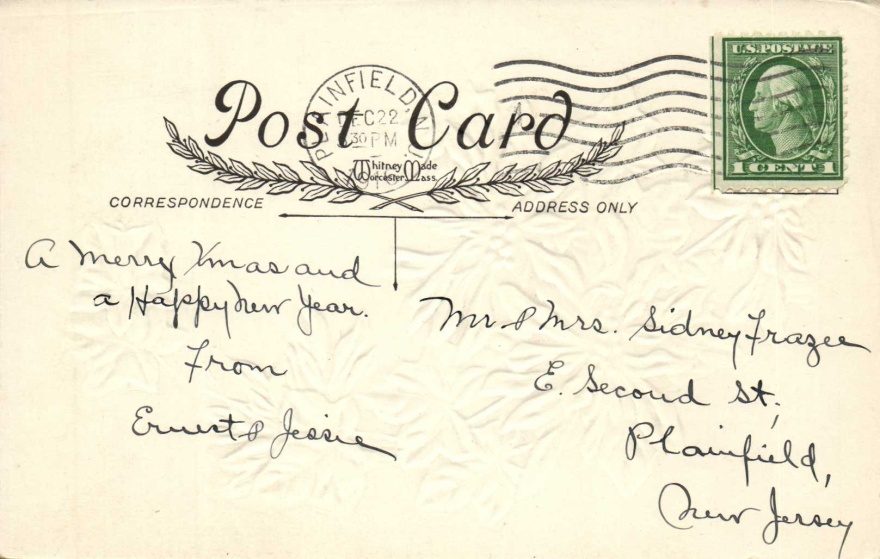 PLAINFIELD, N.J.
DEC 22
30 PM
U.S. POSTAGE
1 CENT 1
Post Card
Whitney Made
Worcester, Mass.
CORRESPONDENCE
ADDRESS ONLY
A Merry Xmas and
a Happy New Year.
From
Ernest & Jessie
Mr & Mrs. Sidney Frazee
E. Second St.,
Plainfield,
New Jersey